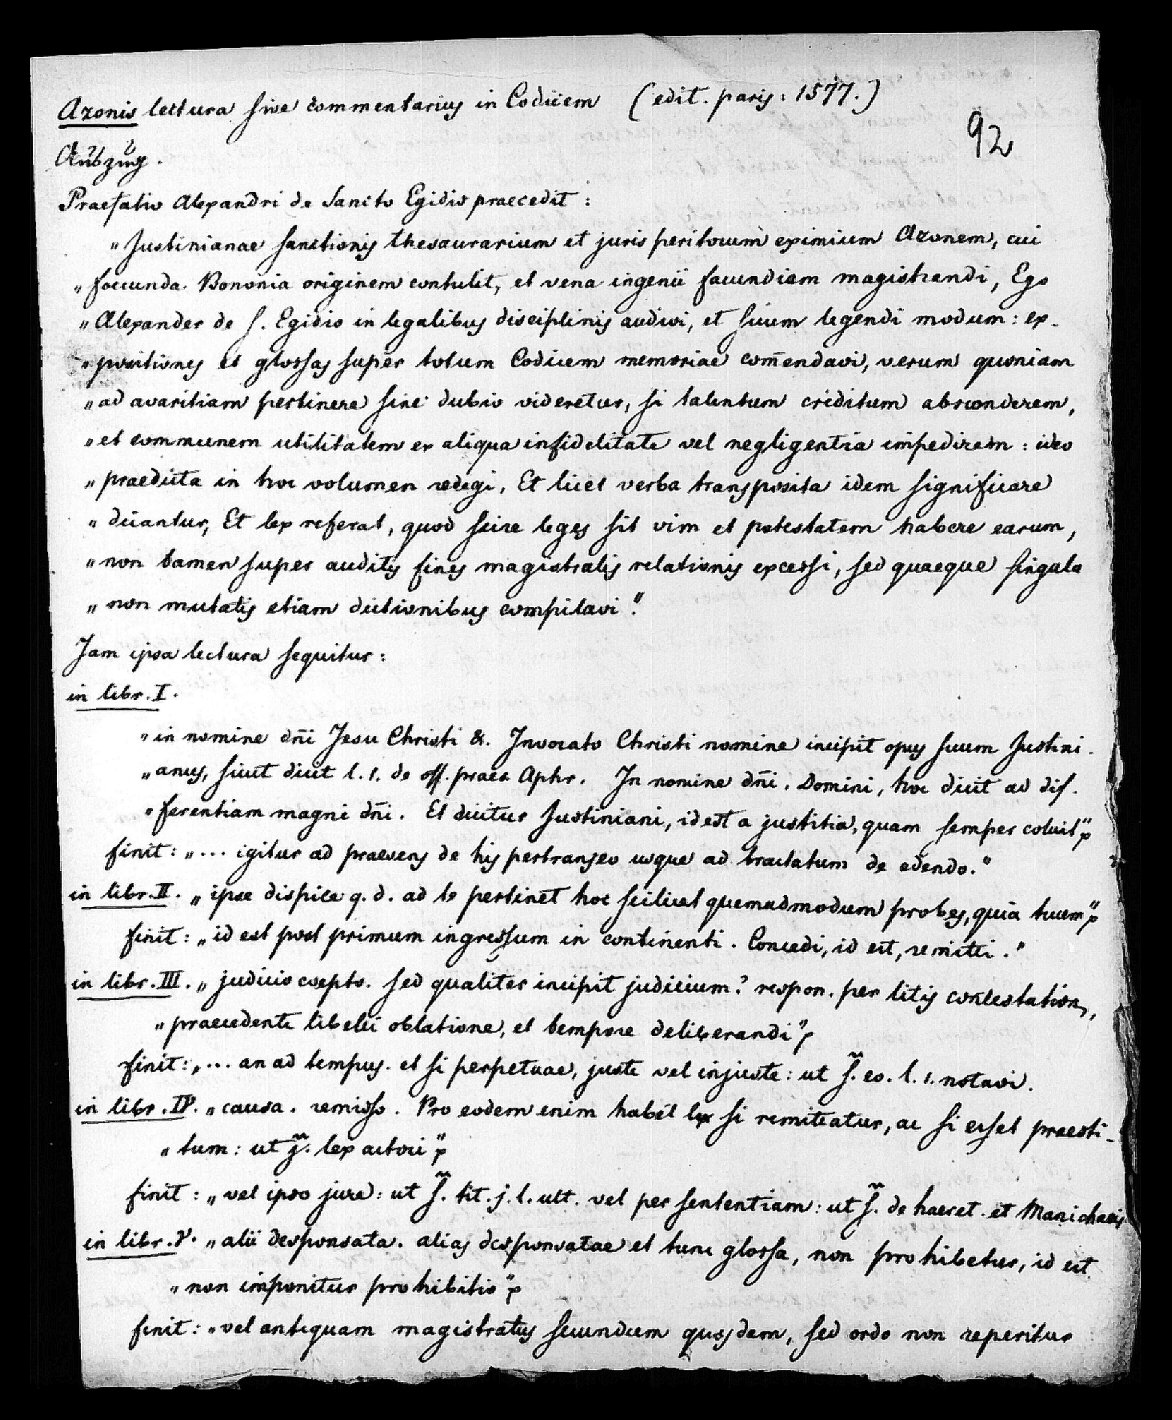 Azonis lectura sive commentarius in Codicem (edit. paris: 1577.)
92
Auszug.
Praefatio Alexandri de Sancto Egidio praecedit:
„Justinianae sanctionis thesaurarium et juris peritorum eximium Azonem, cui
„foecunda Bononia originem contulit, et vena ingenii facundiam magistrandi, Ego
„Alexander de S. Egidio in legalibus disciplinis audivi, et suum legendi modum: ex-
„positiones et glossas super totum Codicem memoriae com̄endavi, verum quoniam
„ad avaritiam pertinere sine dubio videretur, si talentum creditum absconderem,
„et communem utilitatem ex aliqua infidelitate vel negligentia impedirem: ideo
„praedicta in hoc volumen redegi, Et licet verba transposita idem significare
„dicantur, Et lex referat, quod scire leges sit vim et potestatem habere earum,
„non tamen super auditis fines magistralis relationis excessi, sed quaeque singula
„non mutatis etiam dictionibus compilavi."
Jam ipsa lectura sequitur:
in libr. I.
„in nomine dn̄i Jesu Christi &. Invocato Christi nomine incipit opus suum Justini-
„anus, sicut dicit l. 1. de off. praef. Aphr. In nomine dn̄i. Domini, hoc dicit ad dif-
„ferentiam magni dn̄i. Et dicitur Justiniani, id est a justitia, quam semper coluit"
finit: „... igitur ad praesens de his pertranseo usque ad tractatum de edendo."
in libr. II. „ipse dispice q. d. ad te pertinet hoc scilicet quemadmodum probes, quia tuum"
finit: „id est post primum ingressum in continenti. Concedi, id est, remitti."
in libr. III. „judicio coepto. sed qualiter incipit judicium? respon. per litis contestation,
„praecedente libelli oblatione, et tempore deliberandi"
finit: „... an ad tempus. et si perpetuae, juste vel injuste: ut s̃. eo. l. 1. notavi.
in libr. IV. „causa. remisso. Pro eodem enim habet lex si remittatur, ac si esset praesti-
„tum: ut j̃. lex actori"
finit: „vel ipso jure: ut s̃. tit. j. l. ult. vel per sententiam: ut s̃. de haeret. et Manichaeis
in libr. V. „alii desponsata. alias desponsatae et tunc glossa, non prohibetur, id est
„non imponitur prohibitio"
finit: „vel antiquam magistratus secundum quosdam, sed ordo non reperitur